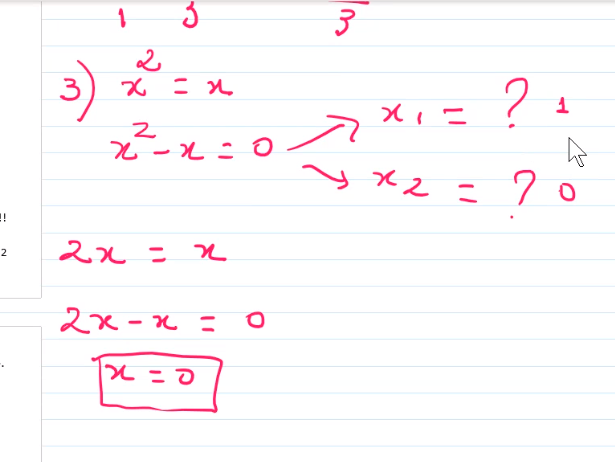 1 3
3
3) x² = x
x² - x = 0
x₁ = ? 1
x₂ = ? 0
!!
2
2x = x
2x - x = 0
x = 0